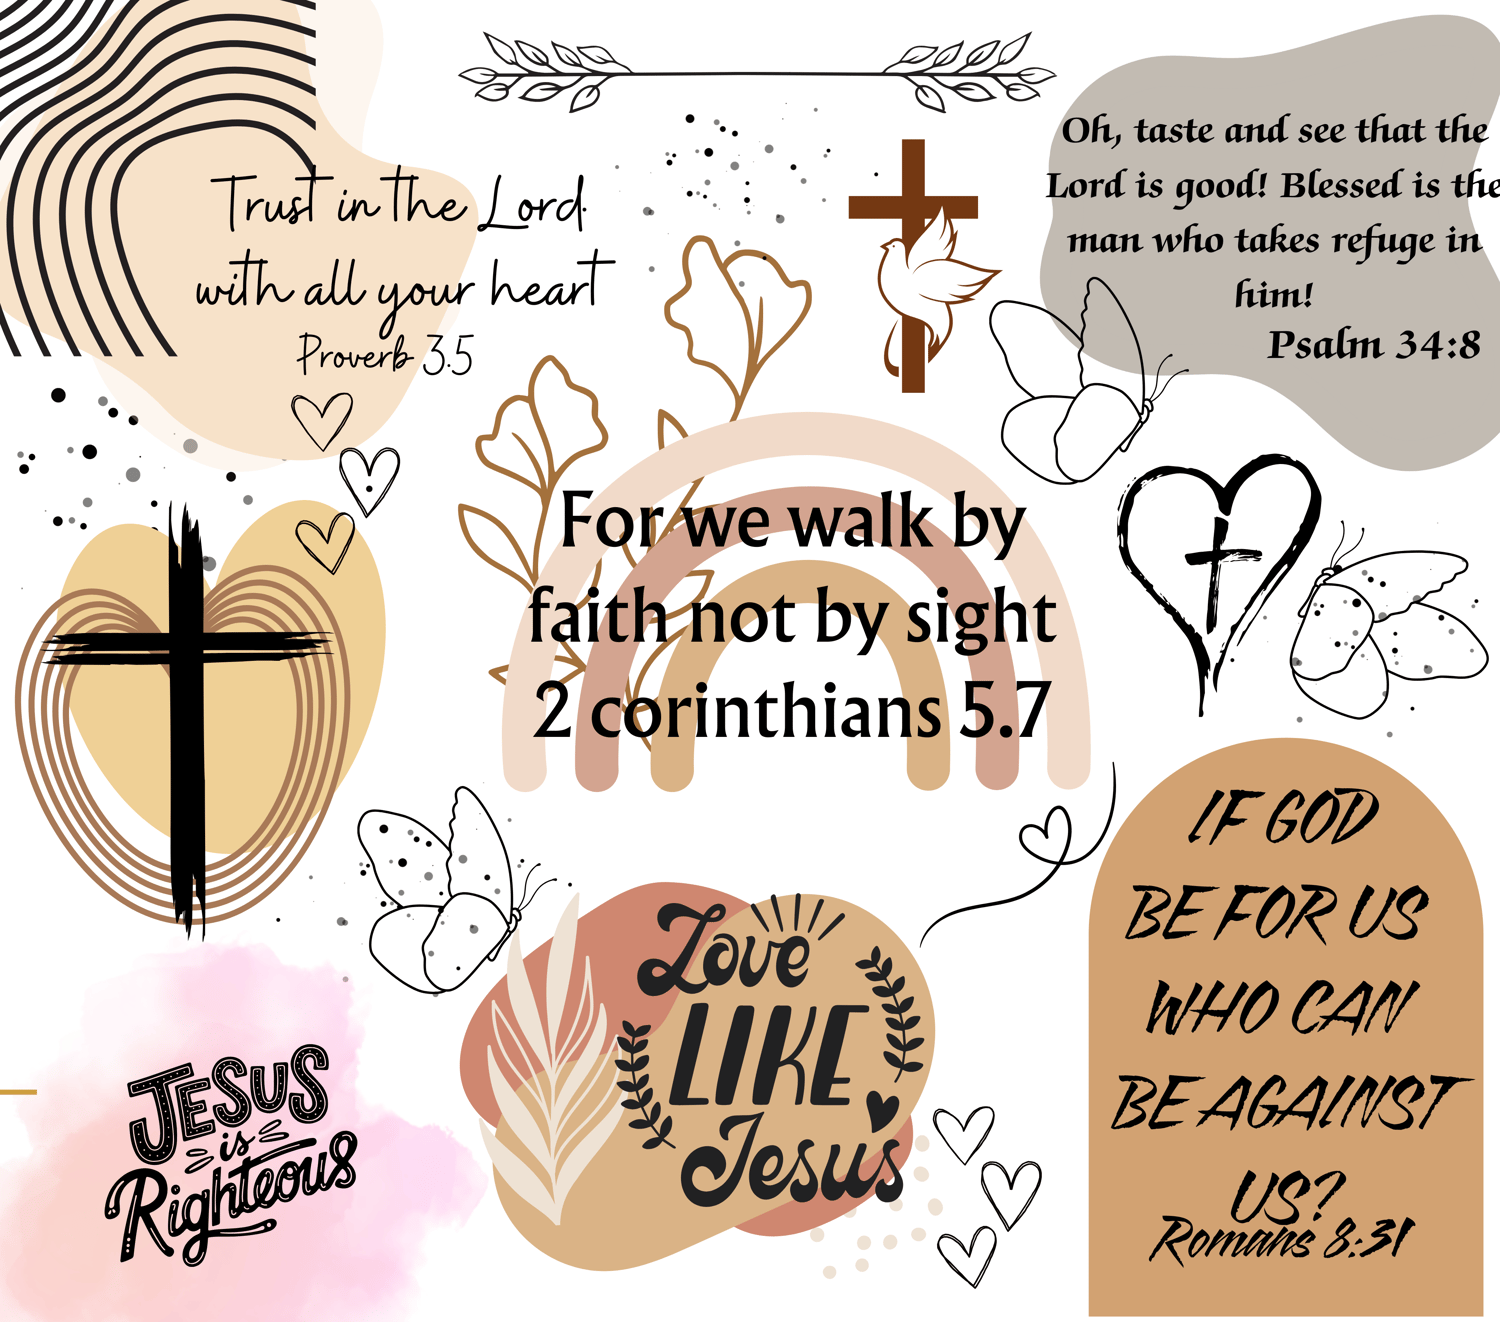 Trust in the Lord
with all your heart
Proverb 3.5
Oh, taste and see that the
Lord is good! Blessed is the
man who takes refuge in
him!
Psalm 34:8
For we walk by
faith not by sight
2 corinthians 5.7
JESUS
is
Righteous
Love
LIKE
Jesus
IF GOD
BE FOR US
WHO CAN
BE AGAINST
US?
Romans 8:31